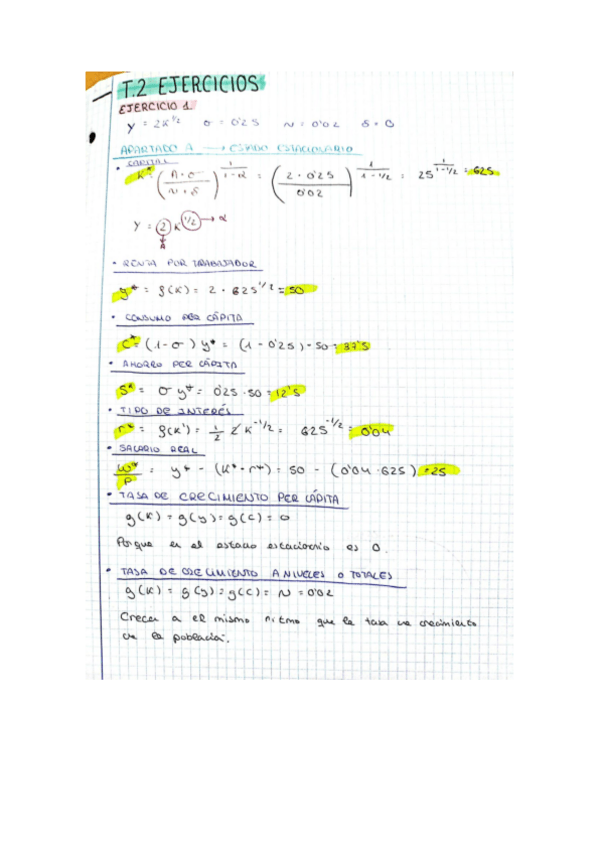 T.2 EJERCICIOS
EJERCICIO 1.
y = 2K^1/2 σ = 0'25 N = 0'02 δ = 0
APARTADO A → ESTADO ESTACIONARIO
• CAPITAL
K* = (A·σ / N+δ)^(1/1-α) = (2·0'25 / 0'02)^(1/1-1/2) = 25^(1/1-1/2) = 625
y = 2 K^1/2 → α
A
• RENTA POR TRABAJADOR
y* = f(K) = 2 · 625^1/2 = 50
• CONSUMO PER CÁPITA
C* = (1-σ) y* = (1-0'25)·50 = 37'5
• AHORRO PER CÁPITA
S* = σ y* = 0'25·50 = 12'5
• TIPO DE INTERÉS
r* = f(K') = 1/2 2 K^-1/2 = 625^-1/2 = 0'04
• SALARIO REAL
W*/P = y* - (K*·r*) = 50 - (0'04·625) = 25
• TASA DE CRECIMIENTO PER CÁPITA
g(K) = g(y) = g(c) = 0
Porque en el estado estacionario es 0.
• TASA DE CRECIMIENTO A NIVELES O TOTALES
g(K) = g(y) = g(c) = N = 0'02
Crecen a el mismo ritmo que la tasa de crecimiento
de la población.